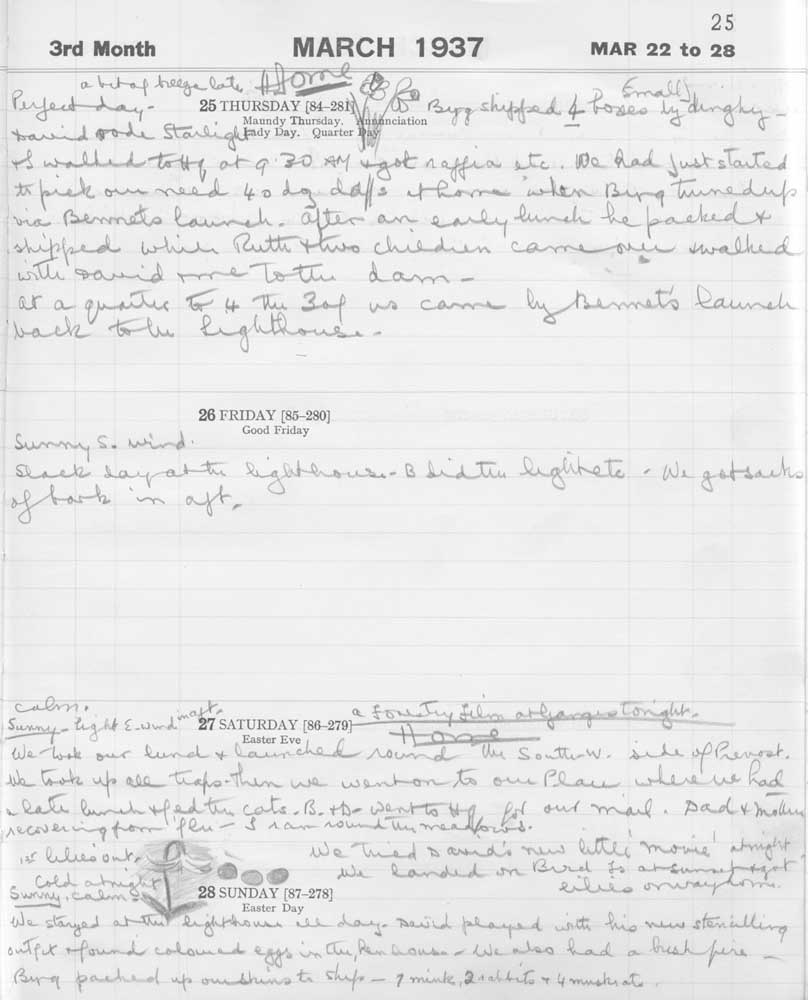 25
3rd Month MARCH 1937 MAR 22 to 28
a bit of breeze late Home
Perfect day - 25 THURSDAY [84-281] Byrg shipped 4 Small boxes by dinghy -
Maundy Thursday. Annunciation
David rode Starlight Lady Day. Quarter Day
& I walked to Hq at 9.30 AM & got raffia etc. We had just started
to pick our need 40 dz daffs at home when Byrg turned up
via Bennets launch. After an early lunch he packed &
shipped while Ruth & two children came over & walked
with David & me to the dam -
at a quarter to 4 the 3 of us came by Bennet's launch
back to the lighthouse.
26 FRIDAY [85-280]
Good Friday
Sunny S. wind.
Slack day at the lighthouse - B did the light etc - We got sacks
of bark in aft.
calm.
Sunny - light E. wind in aft. 27 SATURDAY [86-279] a Forestry Film at Ganges tonight.
Easter Eve Home
We took our lunch & launched round the South W. side of Prevost.
We took up all traps - then we went on to our Place where we had
a late lunch & fed the cats. B. & D - went to Hq for our mail. Dad & Mother
recovering from 'flu - I ran round the meadows.
We tried David's new little 'movie' at night
1st lilies out. We landed on Bird Is at sunset & got
lilies on way home.
Cold at night
Sunny, calm - 28 SUNDAY [87-278]
Easter Day
We stayed at the lighthouse all day - David played with his new stencilling
outfit & found coloured eggs in the hen house - We also had a bush fire -
Byrg packed up our skins to ship - 7 mink, 2 rabbits & 4 muskrats.